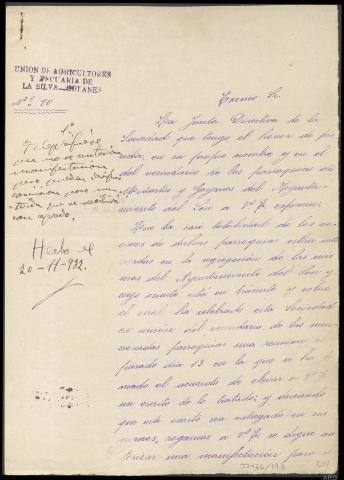 UNION DE AGRICULTORES
Y PECUARIA DE
LA SILVA - HOYANES
Nº 70
Excmo Sr.
La Junta Directiva de la
Sociedad que tengo el honor de pre-
sidir, en su propio nombre y en el
del vecindario de las parroquias de
Miñortos y Goyanes del Ayunta-
miento del Son a V. E. exponen:
Que la casi totalidad de los ve-
cinos de dichas parroquias estan inte-
resados en la agregación de las mis-
mas del Ayuntamiento del Son y
cuyo escrito está en trámite y sobre
el cual ha celebrado esta Sociedad
en unión del vecindario de las men-
cionadas parroquias una reunión el
pasado día 13 en la que se ha to-
mado el acuerdo de elevar a V. E.
un escrito de lo tratado; y deseando
que este escrito sea entregado en sus
manos, rogamos a V. E. se digne au-
torizar una manifestación para el
Telegrafíese
que no se autoriza
manifestación
pero pueden
comisión
con agrado.
Hecho el
20-11-932.